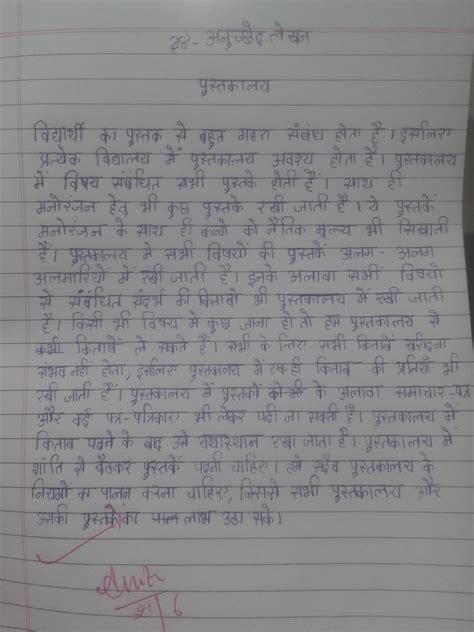 ३४- अनुच्छेद लेखन
पुस्तकालय
विद्यार्थी का पुस्तक से बहुत गहरा संबंध होता है। इसलिए
प्रत्येक विद्यालय में पुस्तकालय अवश्य होता है। पुस्तकालय
में विषय संबंधित सभी पुस्तकें होती हैं। साथ ही
मनोरंजन हेतु भी कुछ पुस्तकें रखी जाती हैं। ये पुस्तकें
मनोरंजन के साथ ही बच्चों को नैतिक मूल्य भी सिखाती
हैं। पुस्तकालय में सभी विषयों की पुस्तकें अलग - अलग
अलमारियों में रखी जाती हैं। इनके अलावा सभी विषयों
से संबंधित संदर्भ की किताबें भी पुस्तकालय में रखी जाती
हैं। किसी भी विषय में कुछ जाना हो तो हम पुस्तकालय से
किताबें ले सकते हैं। सभी के लिए सभी किताबें खरीदना
संभव नहीं होता, इसलिए पुस्तकालय में एक ही किताब की प्रतियाँ भी
रखी जाती हैं। पुस्तकालय में पुस्तकों के अलावा समाचार-पत्र
और कई पत्र-पत्रिकाएँ भी लेकर पढ़ी जा सकती हैं। पुस्तकालय में
किताब पढ़ने के बाद उसे यथास्थान रखा जाता है। पुस्तकालय में
शांति से बैठकर पुस्तकें पढ़नी चाहिए। हमें सदैव पुस्तकालय के
नियमों का पालन करना चाहिए, जिससे सभी पुस्तकालय और
उसकी पुस्तकों का लाभ उठा सकें।